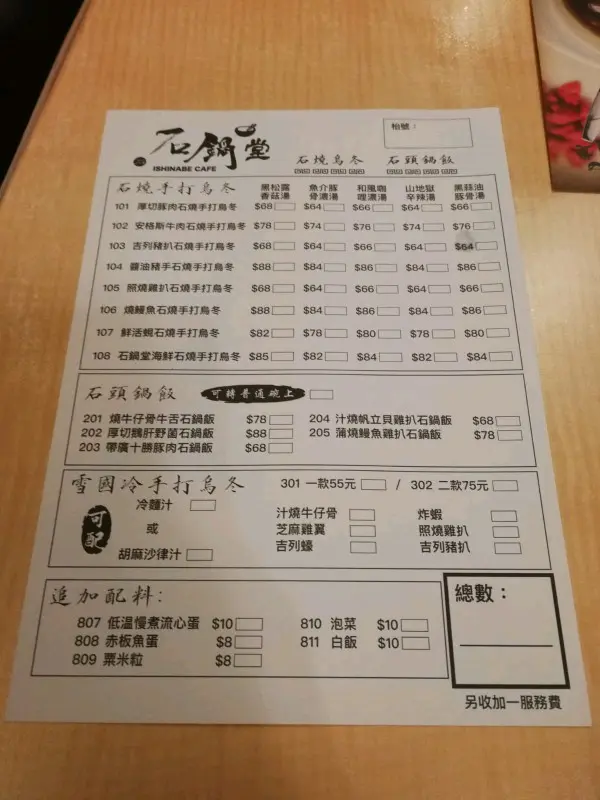 枱號：
石鍋堂
ISHINABE CAFE
石燒烏冬 石頭鍋飯
石燒手打烏冬 黑松露香菇湯 魚介豚骨濃湯 和風咖哩濃湯 山地獄辛辣湯 黑蒜油豚骨湯
101 厚切豚肉石燒手打烏冬 $68 $64 $66 $64 $66
102 安格斯牛肉石燒手打烏冬 $78 $74 $76 $74 $76
103 吉列豬扒石燒手打烏冬 $68 $64 $66 $64 $64
104 醬油豬手石燒手打烏冬 $88 $84 $86 $84 $86
105 照燒雞扒石燒手打烏冬 $68 $64 $66 $64 $66
106 燒鰻魚石燒手打烏冬 $88 $84 $86 $84 $86
107 鮮活蜆石燒手打烏冬 $82 $78 $80 $78 $80
108 石鍋堂海鮮石燒手打烏冬 $85 $82 $84 $82 $84
石頭鍋飯 可轉普通碗上
201 燒牛仔骨牛舌石鍋飯 $78 204 汁燒帆立貝雞扒石鍋飯 $68
202 厚切鵝肝野菌石鍋飯 $88 205 蒲燒鰻魚雞扒石鍋飯 $78
203 帶廣十勝豚肉石鍋飯 $68
雪國冷手打烏冬 301 一款55元 / 302 二款75元
可配 冷麵汁 汁燒牛仔骨 炸蝦
或 芝麻雞翼 照燒雞扒
胡麻沙律汁 吉列蠔 吉列豬扒
追加配料：
807 低溫慢煮流心蛋 $10 810 泡菜 $10
808 赤板魚蛋 $8 811 白飯 $10
809 粟米粒 $8
總數：
另收加一服務費